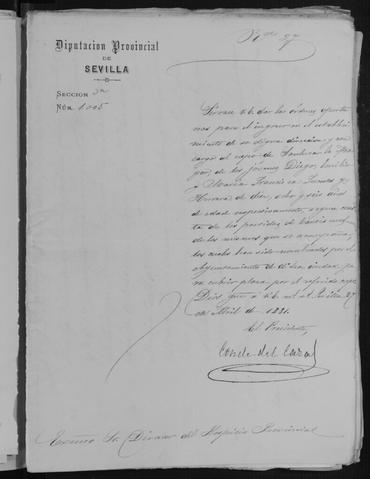 Diputacion Provincial
DE
SEVILLA
SECCION 3ª
NÚM. 1005
Sirvase V.E. dar las órdenes oportu
nas para el ingreso en el estableci
miento de su digna direccion y con
cargo al
de los jóvenes Diego, Emilio
y Maria Francisca
Herrera de diez, ocho y seis años
de edad respectivamente, segun cons
ta de las partidas de bautismo
de los mismos que se acompañan,
los cuales han sido nombrados por el
Ayuntamiento de dicha ciudad, pa
ra cubrir plaza por el referido
Dios gue. a V.E. m. a. Sevilla 27
de Abril de 1881.
El Presidente,
Conde del
Excmo Sr. Director del Hospicio Provincial